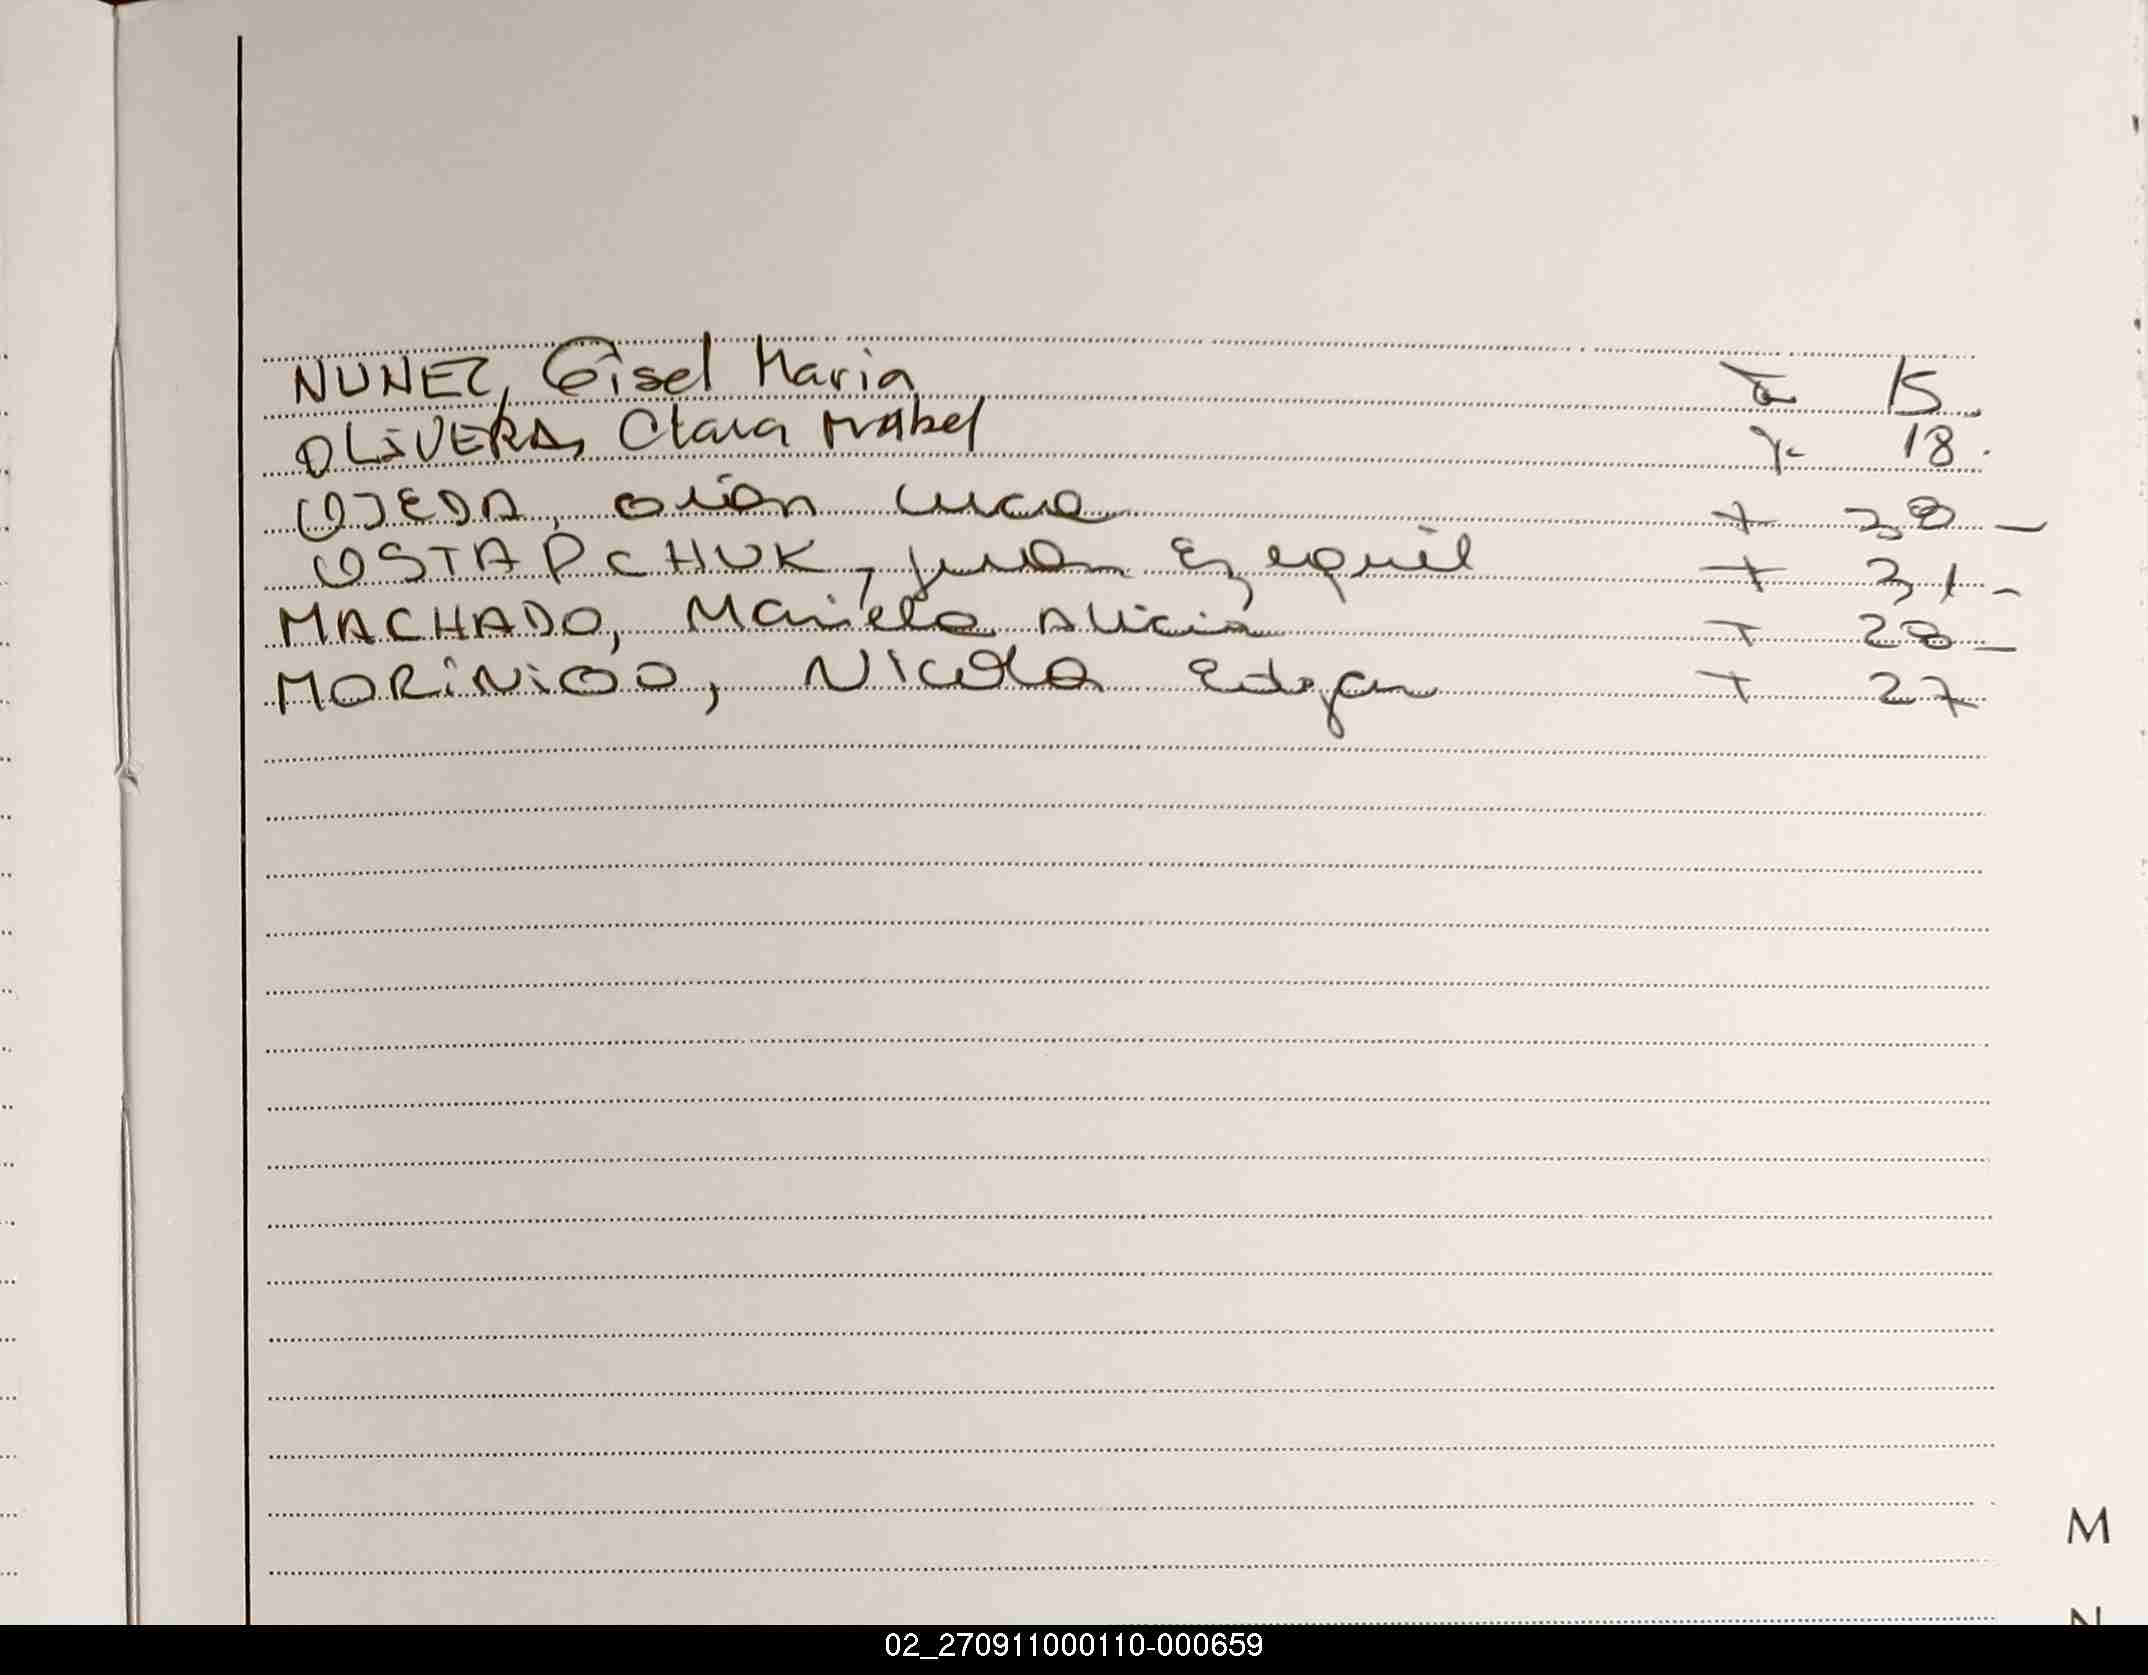 NUNEZ, Gisel Maria 15
OLiVERA, Clara Mabel 18
OJEDA, Orian Lucia + 38 -
OSTAPCHUK, Juan Ezequiel + 31 -
MACHADO, Mariela Alicia + 28 -
MORiNiGO, Nicolas Edgar + 27
M
N
02_270911000110-000659